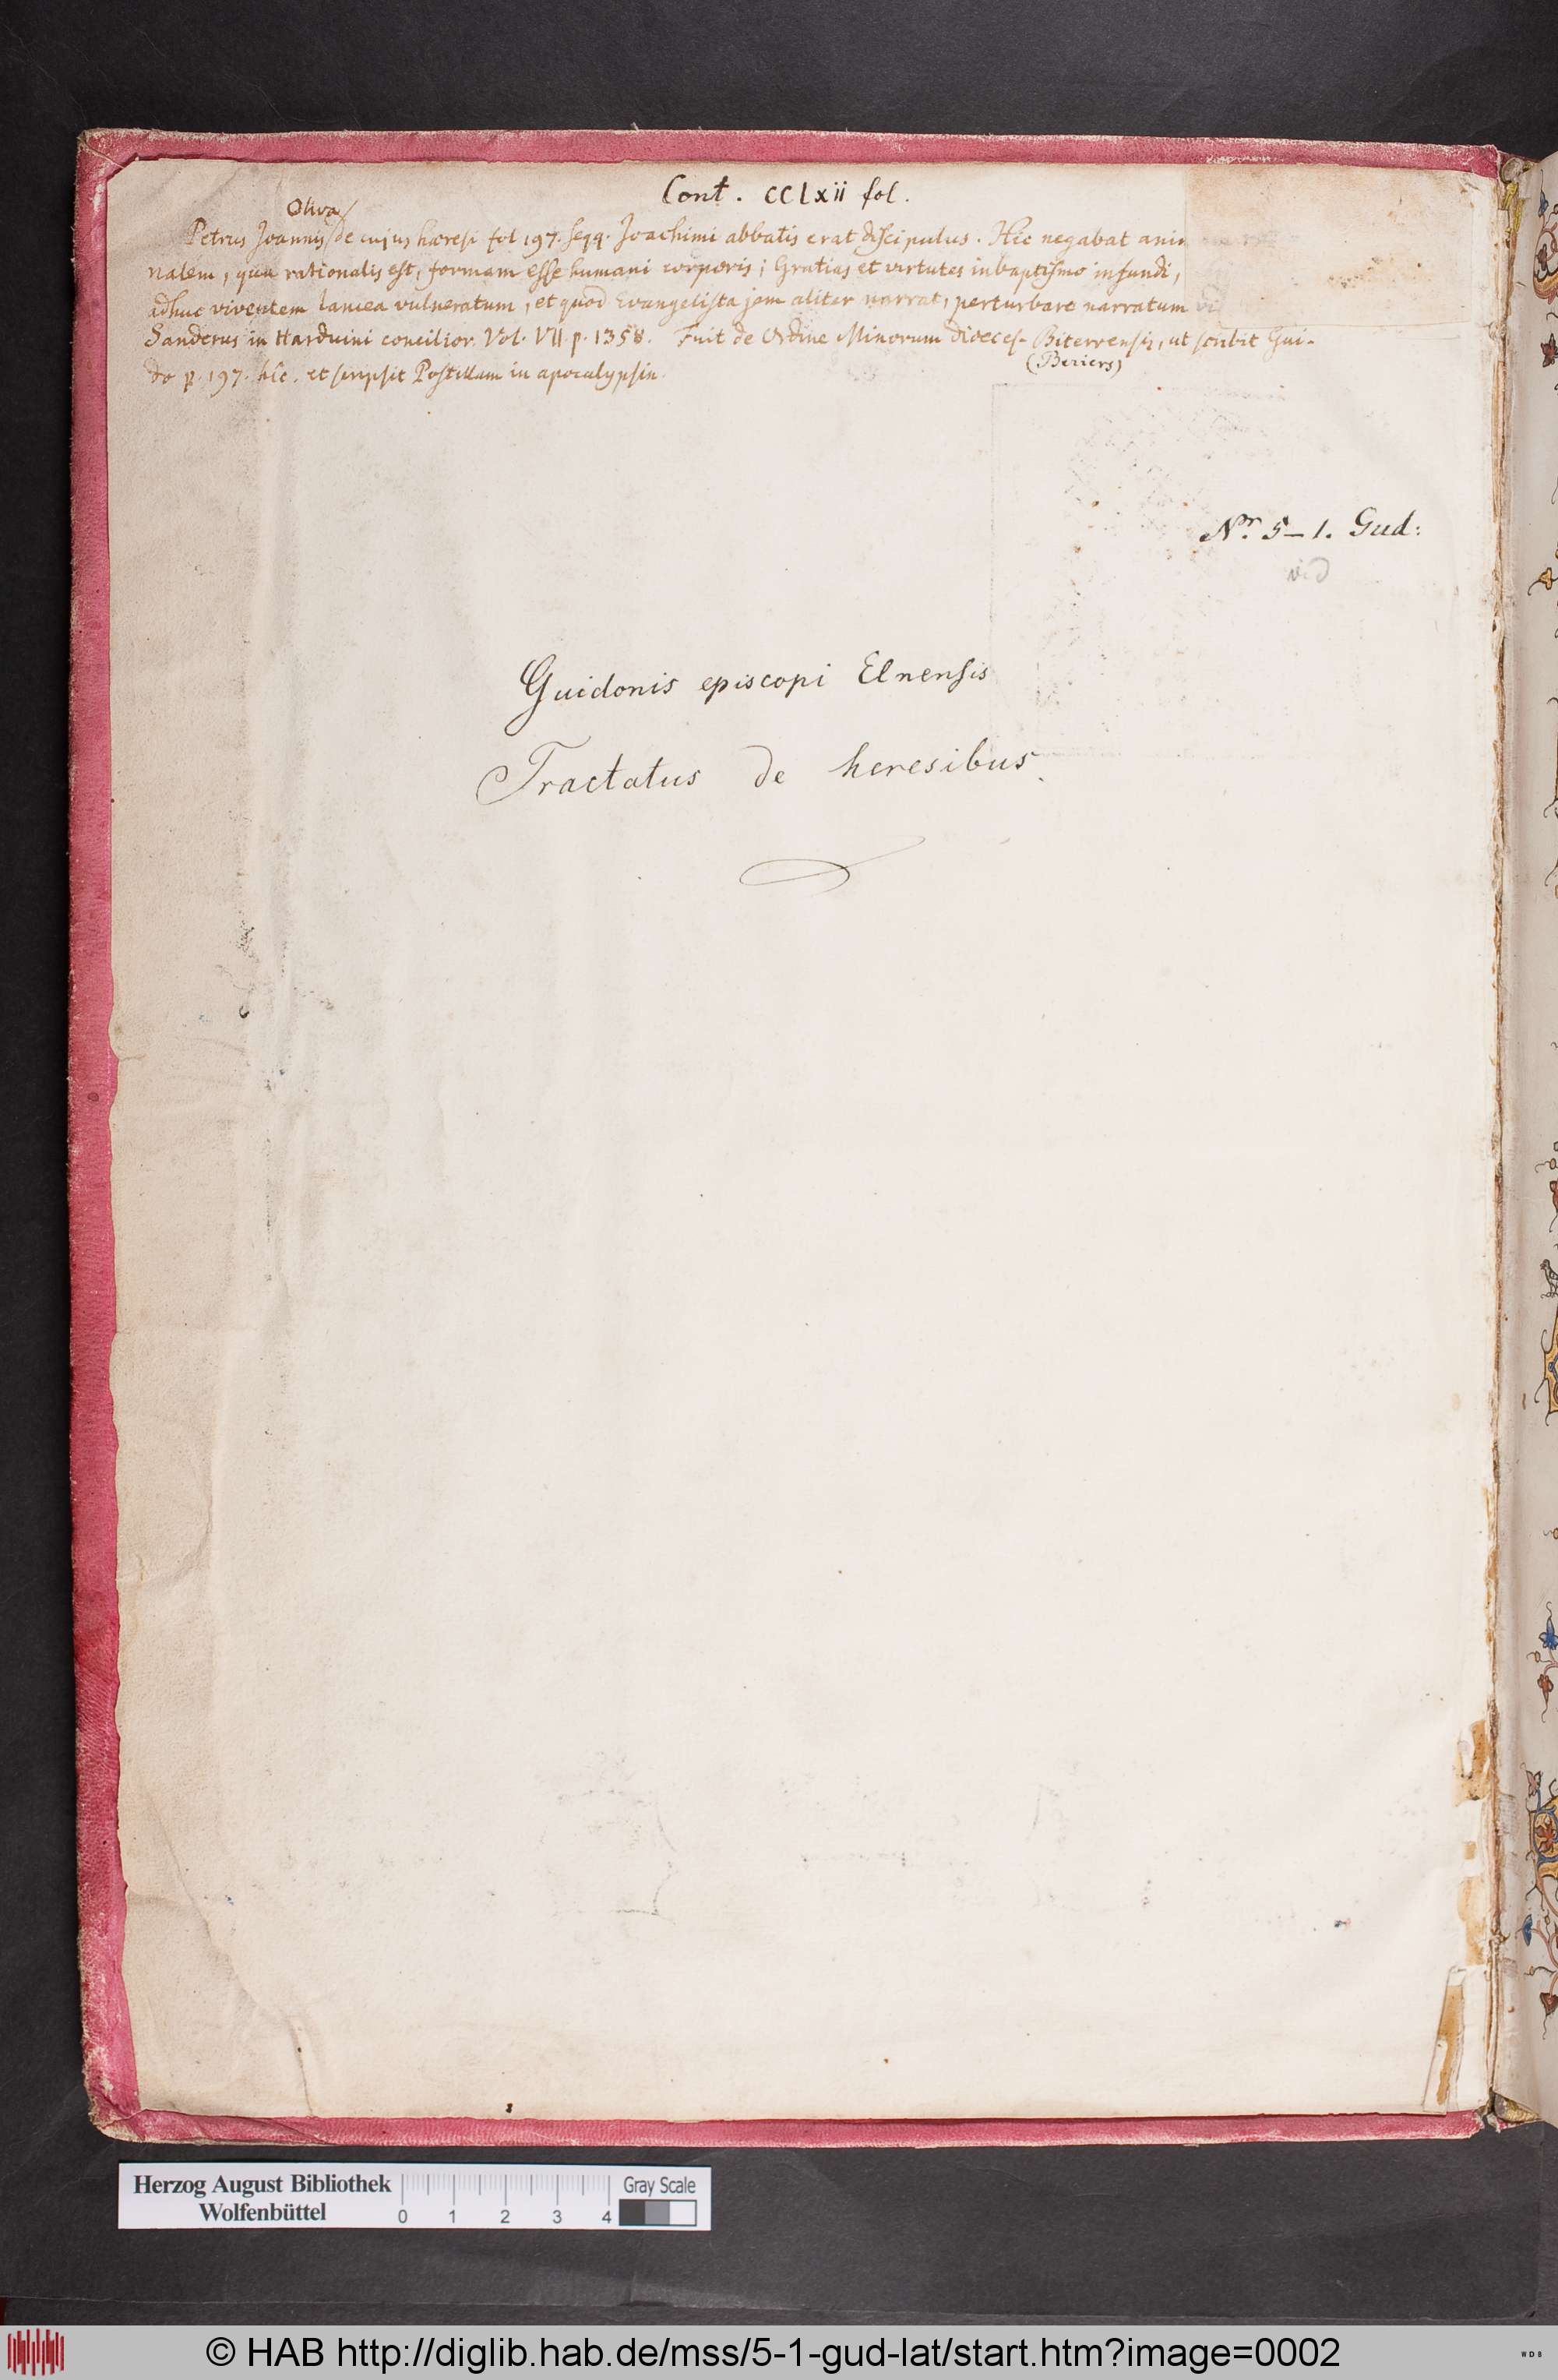 Cont. CClxii fol.
Oliva/
Petrus Joannis/de cujus hæresi fol 197. seqq. Joachimi abbatis erat discipulus. Hic negabat
nalem, qua rationalis est, formam esse humani corporis; Gratias et virtutes in baptismo infundi,
adhuc viventem lancea vulneratum, et quod Evangelista jem aliter narrat, perturbare narratum
Sanderus in Harduini concilior. Vol. VII. p. 1358. Fuit de Ordine Minorum dioeces. Biterrensis, ut scribit Gui-
(Beziers)
do p. 197. hîc. et scripsit Postillam in apocalypsin.
Nr. 5-1. Gud:
Guidonis episcopi Elnensis
Tractatus de heresibus
Herzog August Bibliothek
Wolfenbüttel
0 1 2 3 4
Gray Scale
© HAB http://diglib.hab.de/mss/5-1-gud-lat/start.htm?image=0002
WDB